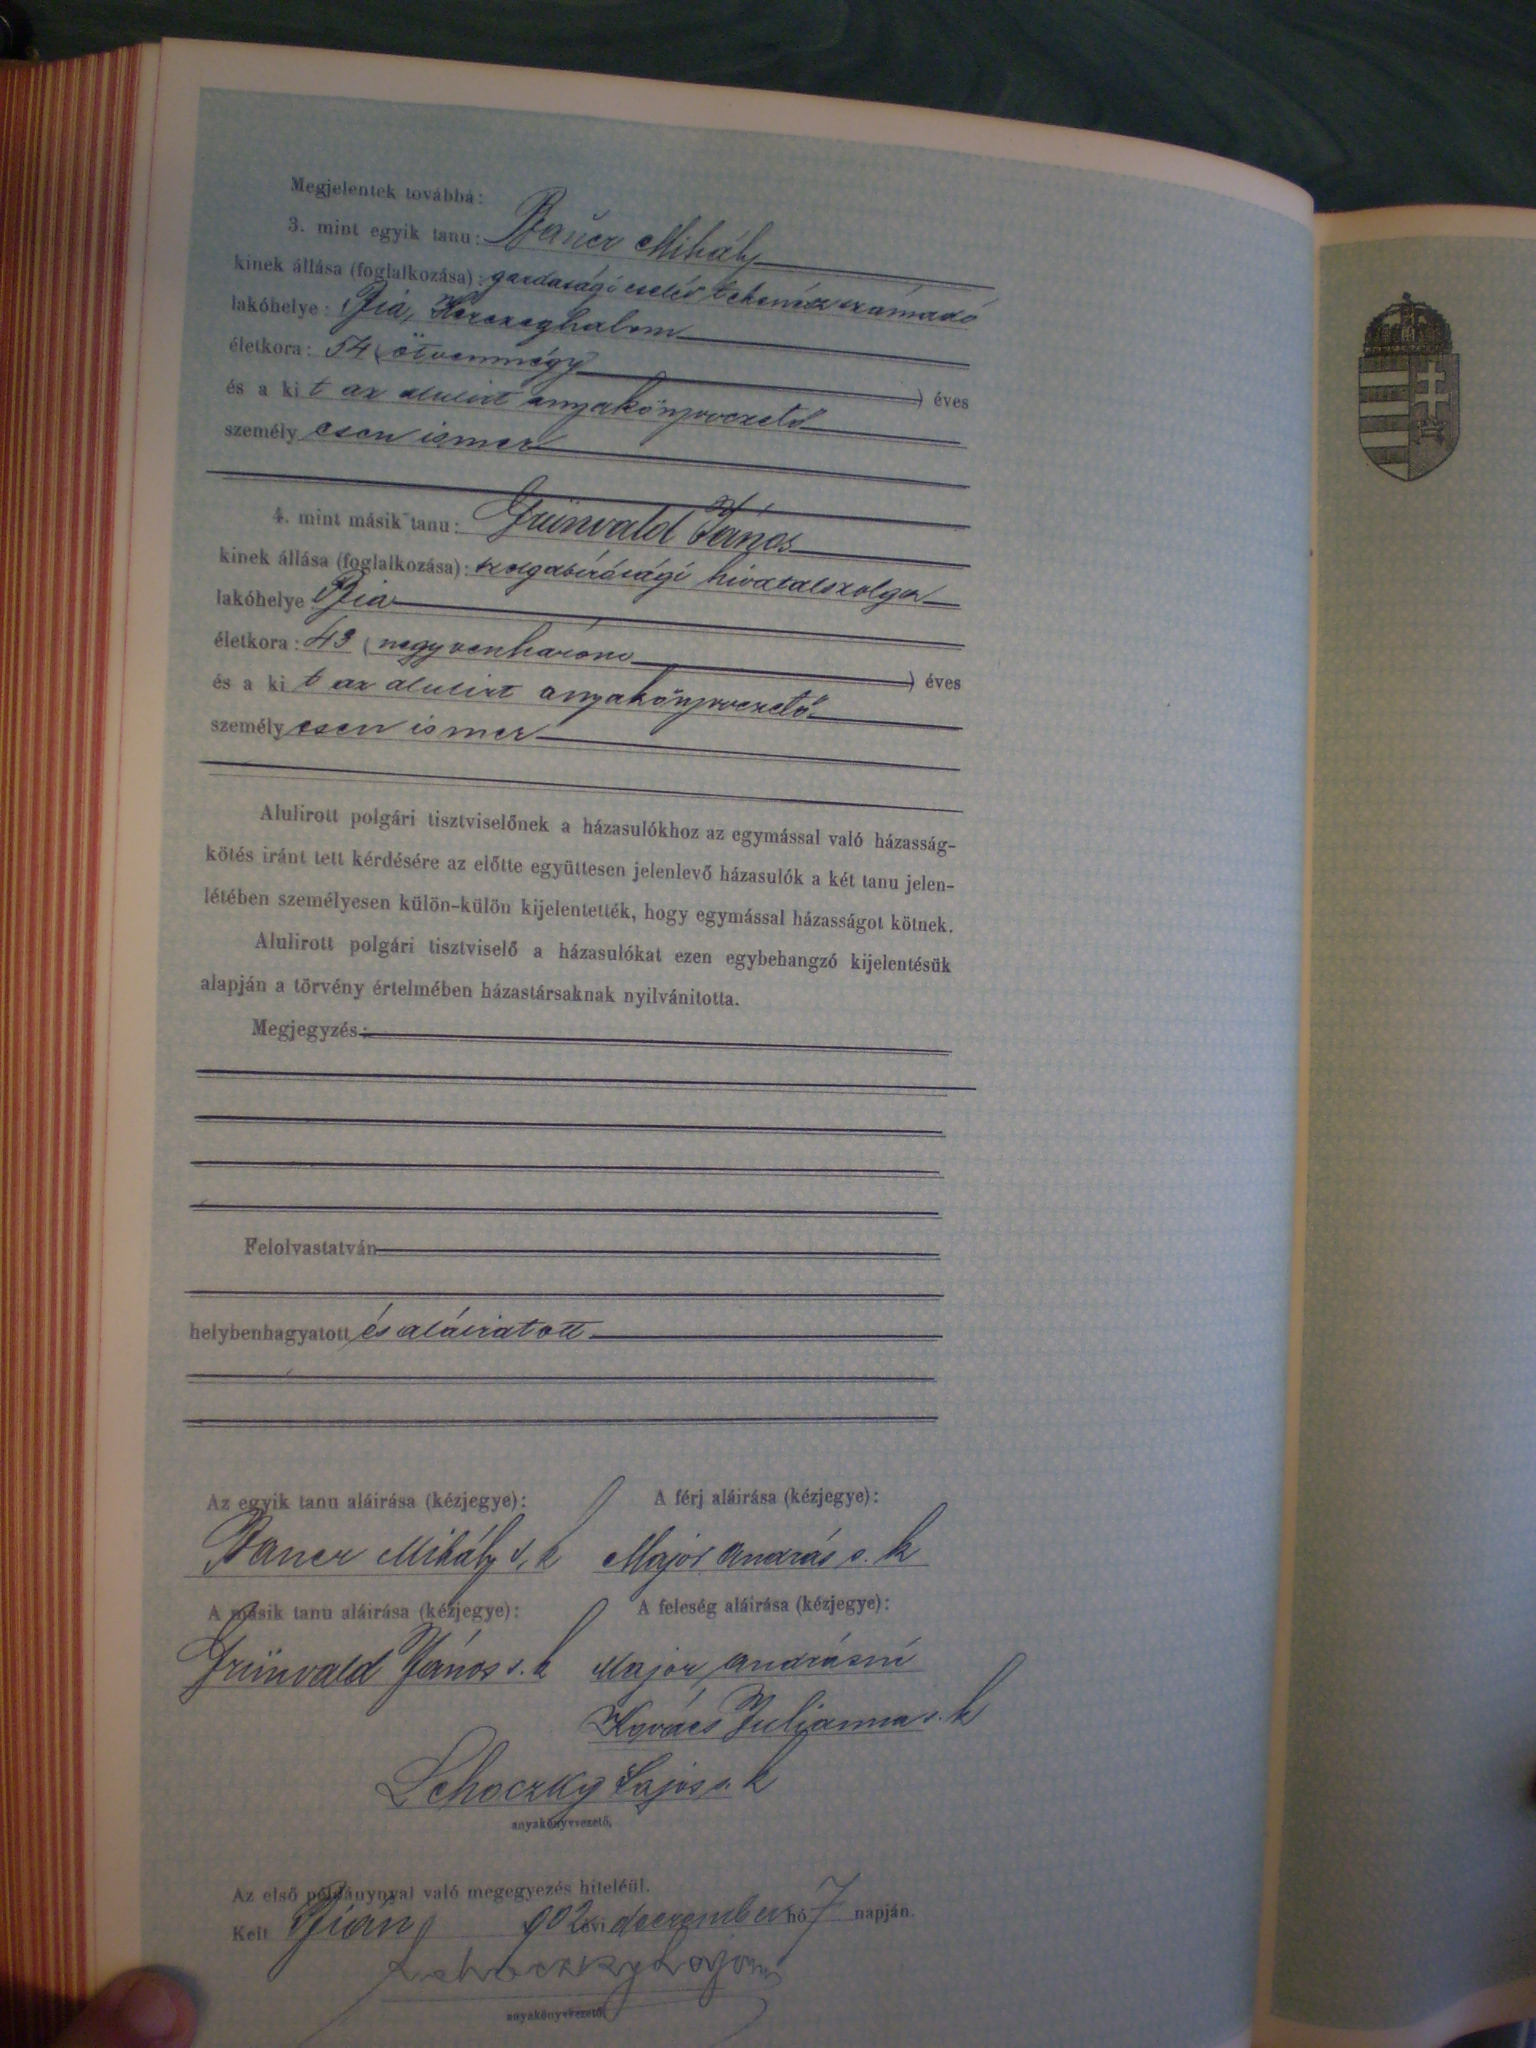 Megjelentek továbbá:
3. mint egyik tanu: Bauer Mihály
kinek állása (foglalkozása): gazdasági cseléd tehenész számadó
lakóhelye: Bia, Herczeghalom
életkora: 54 (ötvennégy) éves
és a ki t az alulirt anyakönyvvezető
személy esen ismer
4. mint másik tanu: Grünvald János
kinek állása (foglalkozása): szolgabirósági hivatalszolga
lakóhelye Bia
életkora: 43 (negyvenhárom) éves
és a ki t az alulirt anyakönyvvezető
személy esen ismer
Alulirott polgári tisztviselőnek a házasulókhoz az egymással való házasság-
kötés iránt tett kérdésére az előtte együttesen jelenlevő házasulók a két tanu jelen-
létében személyesen külön-külön kijelentették, hogy egymással házasságot kötnek.
Alulirott polgári tisztviselő a házasulókat ezen egybehangzó kijelentésük
alapján a törvény értelmében házastársaknak nyilvánitotta.
Megjegyzés:
Felolvastatván
helybenhagyatott és aláiratott
Az egyik tanu aláirása (kézjegye): A férj aláirása (kézjegye):
Bauer Mihály s. k Major András s. k
A másik tanu aláirása (kézjegye): A feleség aláirása (kézjegye):
Grünvald János s. k Major Andrásné
Kovács Julianna s. k
Lehoczky Lajos s. k
anyakönyvvezető.
Az első példánynyal való megegyezés hiteléül.
Kelt Bián, 902 évi december hó 7 napján.
Lehoczky Lajos
anyakönyvvezető.